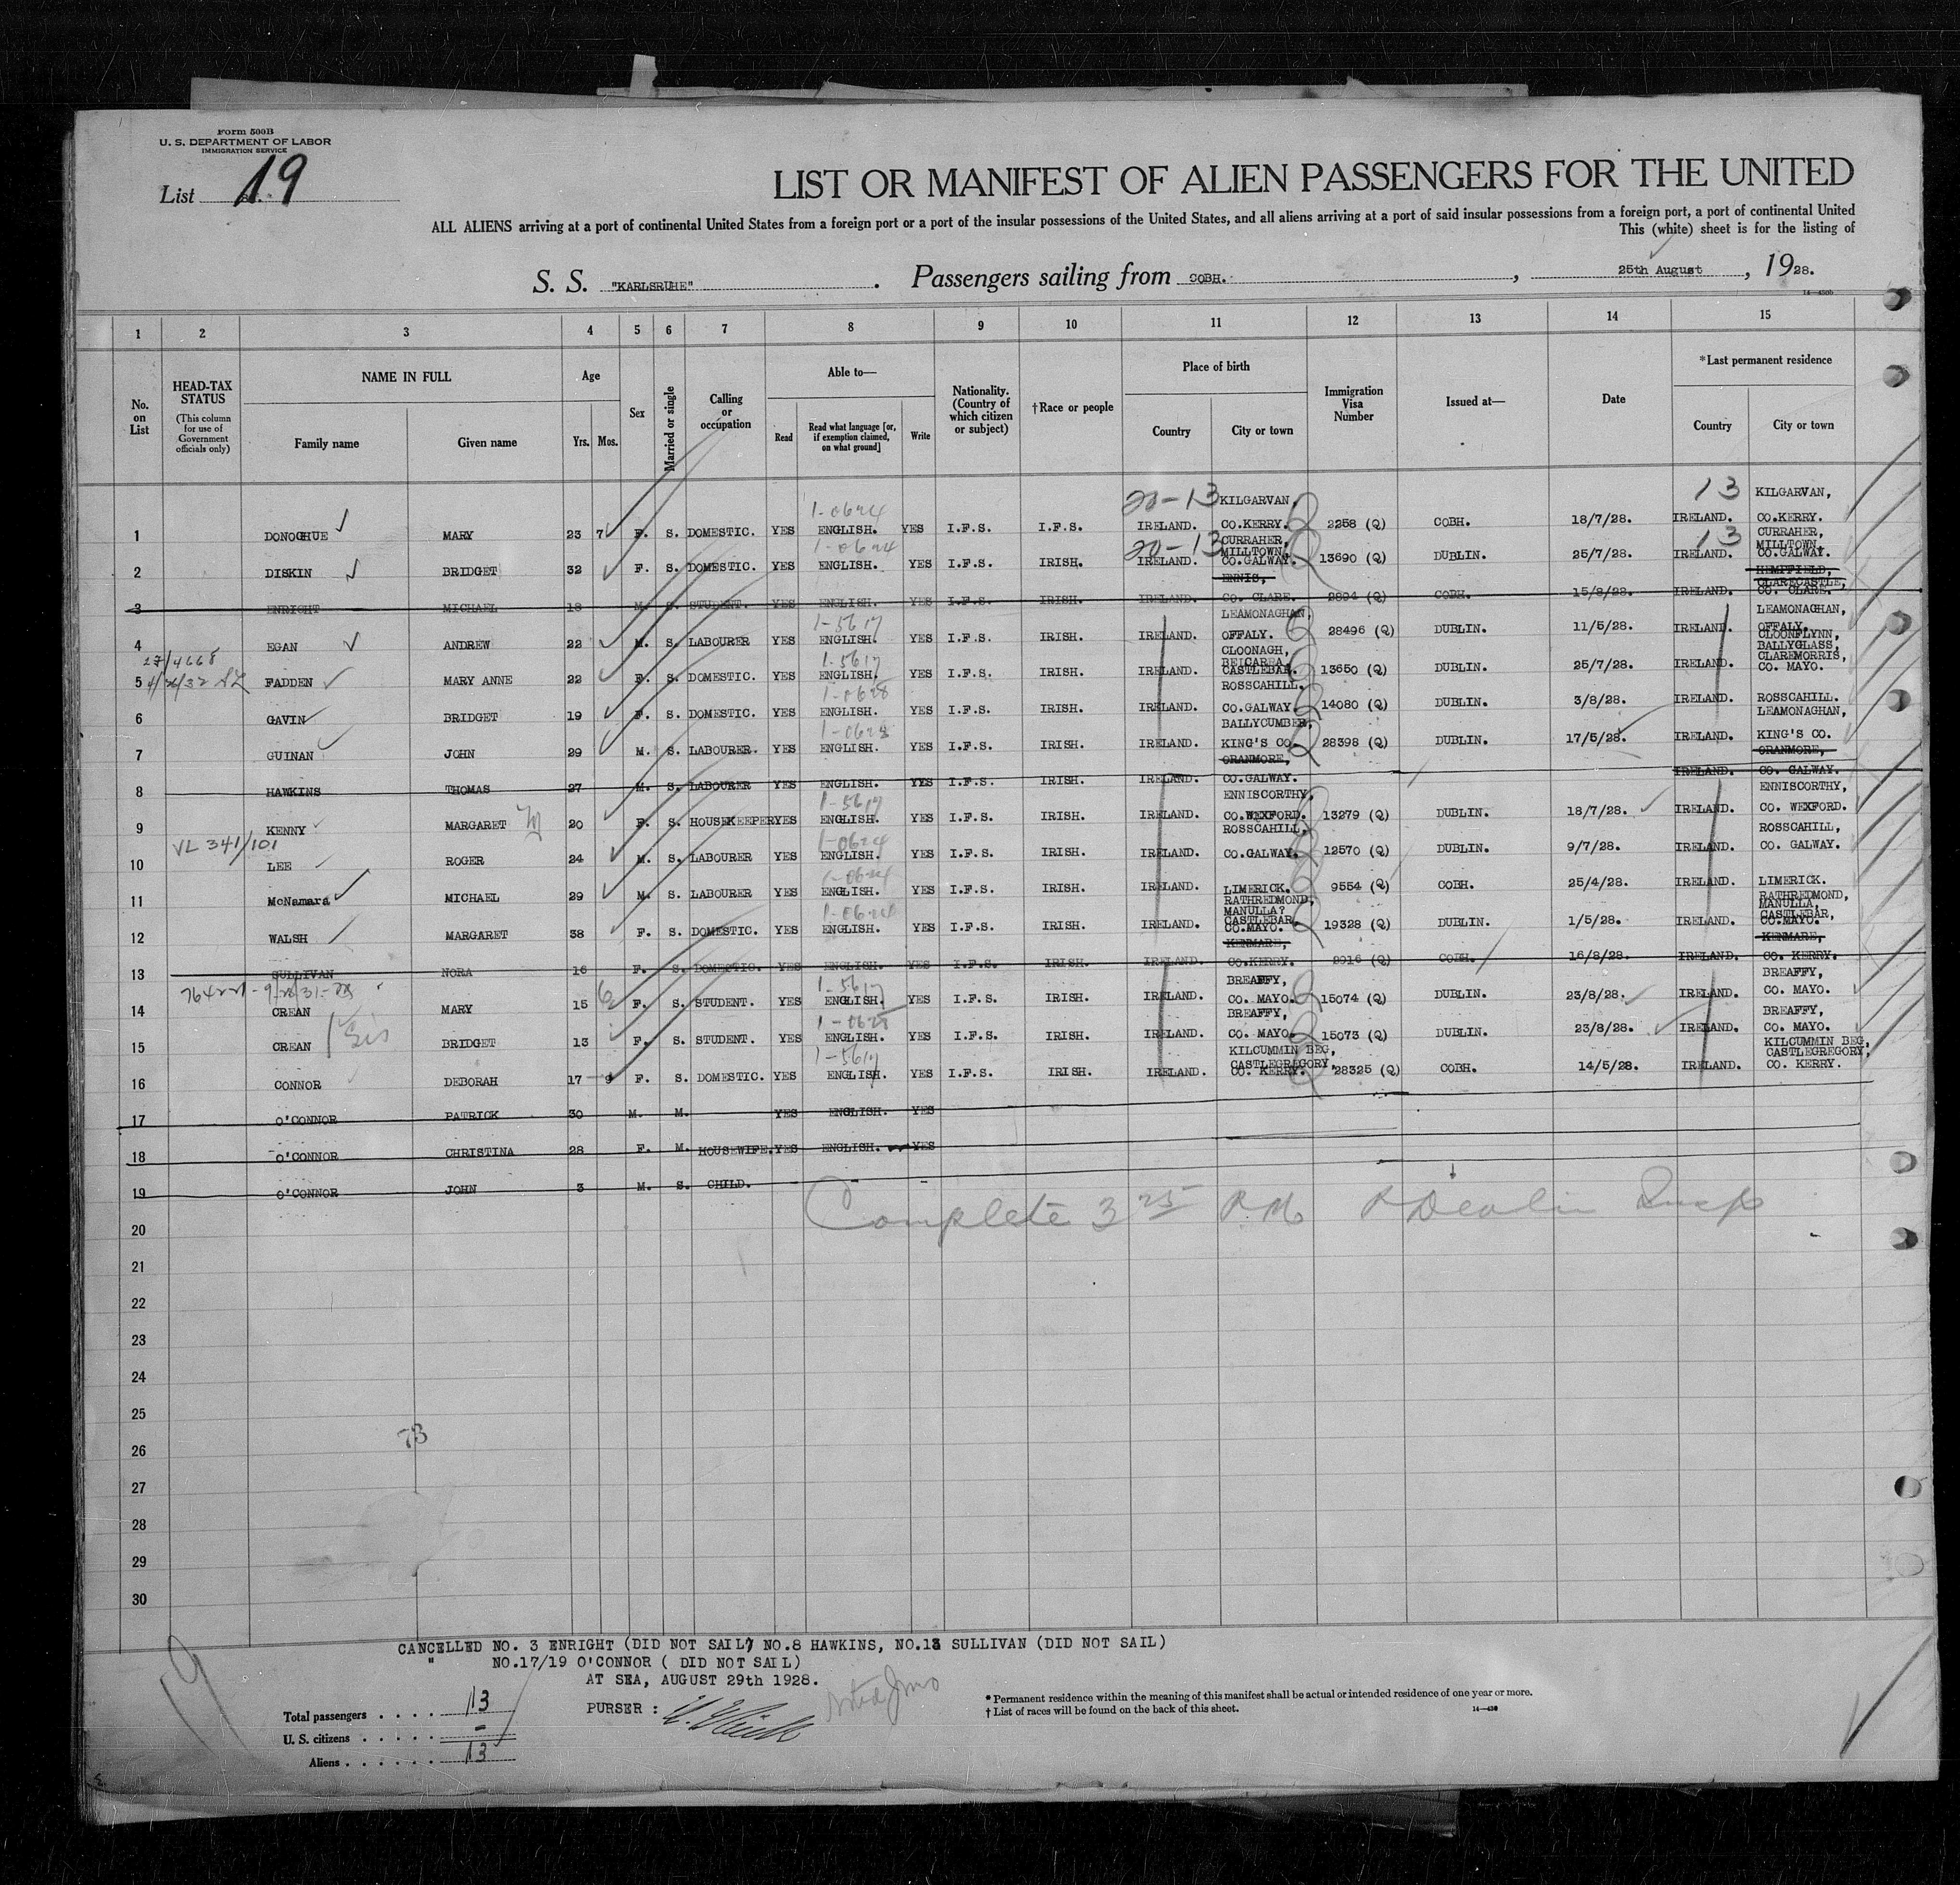 Form 500B
U. S. DEPARTMENT OF LABOR
IMMIGRATION SERVICE
List 19
LIST OR MANIFEST OF ALIEN PASSENGERS FOR THE UNITED
ALL ALIENS arriving at a port of continental United States from a foreign port or a port of the insular possessions of the United States, and all aliens arriving at a port of said insular possessions from a foreign port, a port of continental United
This (white) sheet is for the listing of
S. S. "KARLSRUHE" . Passengers sailing from COBH. , 25th August , 1928.
14—450b
1 2 3 4 5 6 7 8 9 10 11 12 13 14 15
No. on List
HEAD-TAX STATUS
(This column for use of Government officials only)
NAME IN FULL
Family name Given name
Age
Yrs. Mos.
Sex
Married or single
Calling or occupation
Able to—
Read
Read what language [or, if exemption claimed, on what ground]
Write
Nationality. (Country of which citizen or subject)
†Race or people
Place of birth
Country City or town
Immigration Visa Number
Issued at—
Date
*Last permanent residence
Country City or town
20-13 KILGARVAN, 13 KILGARVAN,
1-0624
1 DONOGHUE MARY 23 7 F. S. DOMESTIC. YES ENGLISH. YES I.F.S. I.F.S. IRELAND. CO.KERRY. 2258 (Q) COBH. 18/7/28. IRELAND. CO.KERRY.
1-0624 20-13 CURRAHER, MILLTOWN, 13 CURRAHER, MILLTOWN,
2 DISKIN BRIDGET 32 F. S. DOMESTIC. YES ENGLISH. YES I.F.S. IRISH. IRELAND. CO.GALWAY. 13690 (Q) DUBLIN. 25/7/28. IRELAND. CO.GALWAY.
ENNIS, HEMPFIELD, CLARECASTLE,
3 ENRIGHT MICHAEL 18 M. S. STUDENT. YES ENGLISH. YES I.F.S. IRISH. IRELAND. CO. CLARE. 2894 (Q) COBH. 15/8/28. IRELAND. CO. CLARE.
1-5617 LEAMONAGHAN, LEAMONAGHAN,
4 EGAN ANDREW 22 M. S. LABOURER YES ENGLISH. YES I.F.S. IRISH. IRELAND. OFFALY. 28496 (Q) DUBLIN. 11/5/28. IRELAND. OFFALY.
27/4668 1-5617 CLOONAGH, BELCARRA, CLOONFLYNN, BALLYGLASS, CLAREMORRIS,
5 FADDEN MARY ANNE 22 F. S. DOMESTIC. YES ENGLISH. YES I.F.S. IRISH. IRELAND. CASTLEBAR. 13650 (Q) DUBLIN. 25/7/28. IRELAND. CO. MAYO.
1-0628 ROSSCAHILL.
6 GAVIN BRIDGET 19 F. S. DOMESTIC. YES ENGLISH. YES I.F.S. IRISH. IRELAND. CO.GALWAY. 14080 (Q) DUBLIN. 3/8/28. IRELAND. ROSSCAHILL.
1-0628 BALLYCUMBER, LEAMONAGHAN,
7 GUINAN JOHN 29 M. S. LABOURER. YES ENGLISH. YES I.F.S. IRISH. IRELAND. KING'S CO. 28398 (Q) DUBLIN. 17/5/28. IRELAND. KING'S CO.
ORANMORE, ORANMORE,
8 HAWKINS THOMAS 27 M. S. LABOURER YES ENGLISH. YES I.F.S. IRISH. IRELAND. CO.GALWAY. IRELAND. CO. GALWAY.
1-5617 ENNISCORTHY, ENNISCORTHY,
9 KENNY MARGARET 20 F. S. HOUSEKEEPER YES ENGLISH. YES I.F.S. IRISH. IRELAND. CO.WEXFORD. 13279 (Q) DUBLIN. 18/7/28. IRELAND. CO. WEXFORD.
VL 341/101 1-0624 ROSSCAHILL, ROSSCAHILL,
10 LEE ROGER 24 M. S. LABOURER YES ENGLISH. YES I.F.S. IRISH. IRELAND. CO.GALWAY. 12570 (Q) DUBLIN. 9/7/28. IRELAND. CO. GALWAY.
1-0624
11 McNamara MICHAEL 29 M. S. LABOURER YES ENGLISH. YES I.F.S. IRISH. IRELAND. LIMERICK. 9554 (Q) COBH. 25/4/28. IRELAND. LIMERICK.
1-0624 RATHREDMOND, MANULLA? CASTLEBAR, RATHREDMOND, MANULLA, CASTLEBAR,
12 WALSH MARGARET 38 F. S. DOMESTIC. YES ENGLISH. YES I.F.S. IRISH. IRELAND. CO.MAYO. 19328 (Q) DUBLIN. 1/5/28. IRELAND. CO.MAYO.
KENMARE, KENMARE,
13 SULLIVAN NORA 16 F. S. DOMESTIC. YES ENGLISH. YES I.F.S. IRISH. IRELAND. CO.KERRY. 2916 (Q) COBH. 16/8/28. IRELAND. CO. KERRY.
1-5617 BREAFFY, BREAFFY,
14 CREAN MARY 15 6 F. S. STUDENT. YES ENGLISH. YES I.F.S. IRISH. IRELAND. CO. MAYO. 15074 (Q) DUBLIN. 23/8/28. IRELAND. CO. MAYO.
Sis 1-0628 BREAFFY, BREAFFY,
15 CREAN BRIDGET 13 F. S. STUDENT. YES ENGLISH. YES I.F.S. IRISH. IRELAND. CO. MAYO. 15073 (Q) DUBLIN. 23/8/28. IRELAND. CO. MAYO.
1-5617 KILCUMMIN BEG, CASTLEGREGORY, KILCUMMIN BEG, CASTLEGREGORY,
16 CONNOR DEBORAH 17 9 F. S. DOMESTIC. YES ENGLISH. YES I.F.S. IRISH. IRELAND. CO. KERRY. 28325 (Q) COBH. 14/5/28. IRELAND. CO. KERRY.
17 O'CONNOR PATRICK 30 M. M. YES ENGLISH. YES
18 O'CONNOR CHRISTINA 28 F. M. HOUSEWIFE. YES ENGLISH. YES
19 O'CONNOR JOHN 3 M. S. CHILD. - - -
Complete 3 25 PM
20
21
22
23
24
25
26
27
28
29
30
CANCELLED NO. 3 ENRIGHT (DID NOT SAIL) NO.8 HAWKINS, NO.13 SULLIVAN (DID NOT SAIL)
" NO.17/19 O'CONNOR ( DID NOT SAIL)
AT SEA, AUGUST 29th 1928.
PURSER :
Total passengers . . . . 13
U. S. citizens . . . . . -
Aliens . . . . . . 13
* Permanent residence within the meaning of this manifest shall be actual or intended residence of one year or more.
† List of races will be found on the back of this sheet.
14—430
19